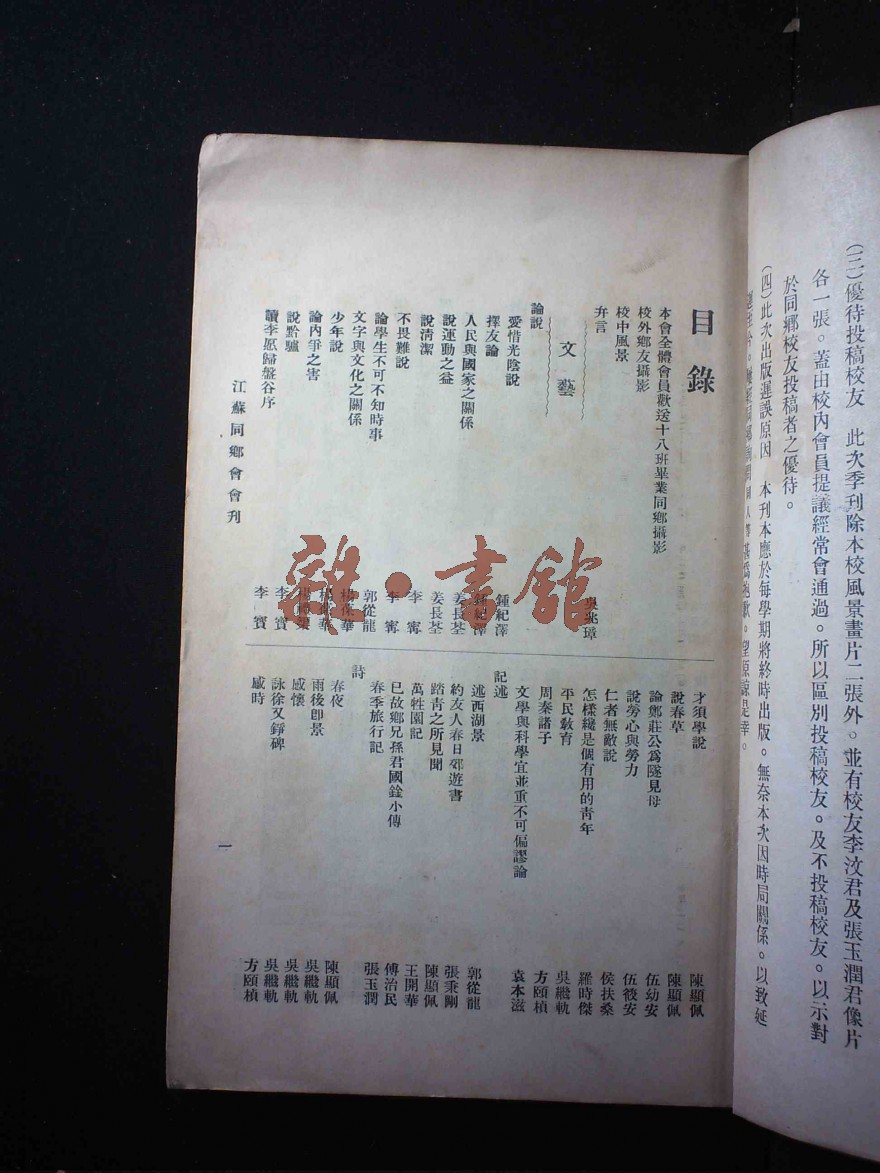 (三)優待投稿校友　此次季刊除本校風景畫片二張外。並有校友李汶君及張玉潤君像片
各一張。蓋由校內會員提議經常會通過。所以區別投稿校友。及不投稿校友。以示對
於同鄉校友投稿者之優待。
(四)此次出版遲誤原因　本刊本應於每學期將終時出版。無奈本次因時局關係。以致延
望原諒是幸。
目錄
本會全體會員歡送十八班畢業同鄉攝影
校外鄉友攝影
校中風景
弁言　吳兆璋
文藝
論說
愛惜光陰說　鍾紀澤
擇友論　鍾紀澤
人民與國家之關係　姜長荃
說運動之益　姜長荃
說清潔　李寗
不畏難說　李寗
論學生不可不知時事　郭從龍
文字與文化之關係　楊保華
少年說
論內爭之害
說黔驢　李賓
讀李愿歸盤谷序　李賓
才須學說　陳顯佩
說春草　陳顯佩
論鄭莊公爲隧見母　伍幼安
說勞心與勞力　伍筱安
仁者無敵說　侯扶桑
怎樣纔是個有用的青年　羅時傑
平民教育　吳繼軌
周秦諸子　方頤楨
文學與科學宜並重不可偏謬論　袁本滋
記述
述西湖景　郭從龍
約友人春日郊遊書　張秉剛
踏青之所見聞　陳顯佩
萬牲園記　王開華
已故鄉兄孫君國銓小傳　傅治民
春季旅行記　張玉潤
詩
春夜　陳顯佩
雨後卽景　吳繼軌
感懷　吳繼軌
詠徐又錚碑　吳繼軌
感時　方頤楨
江蘇同鄉會會刊
一
雜·書館